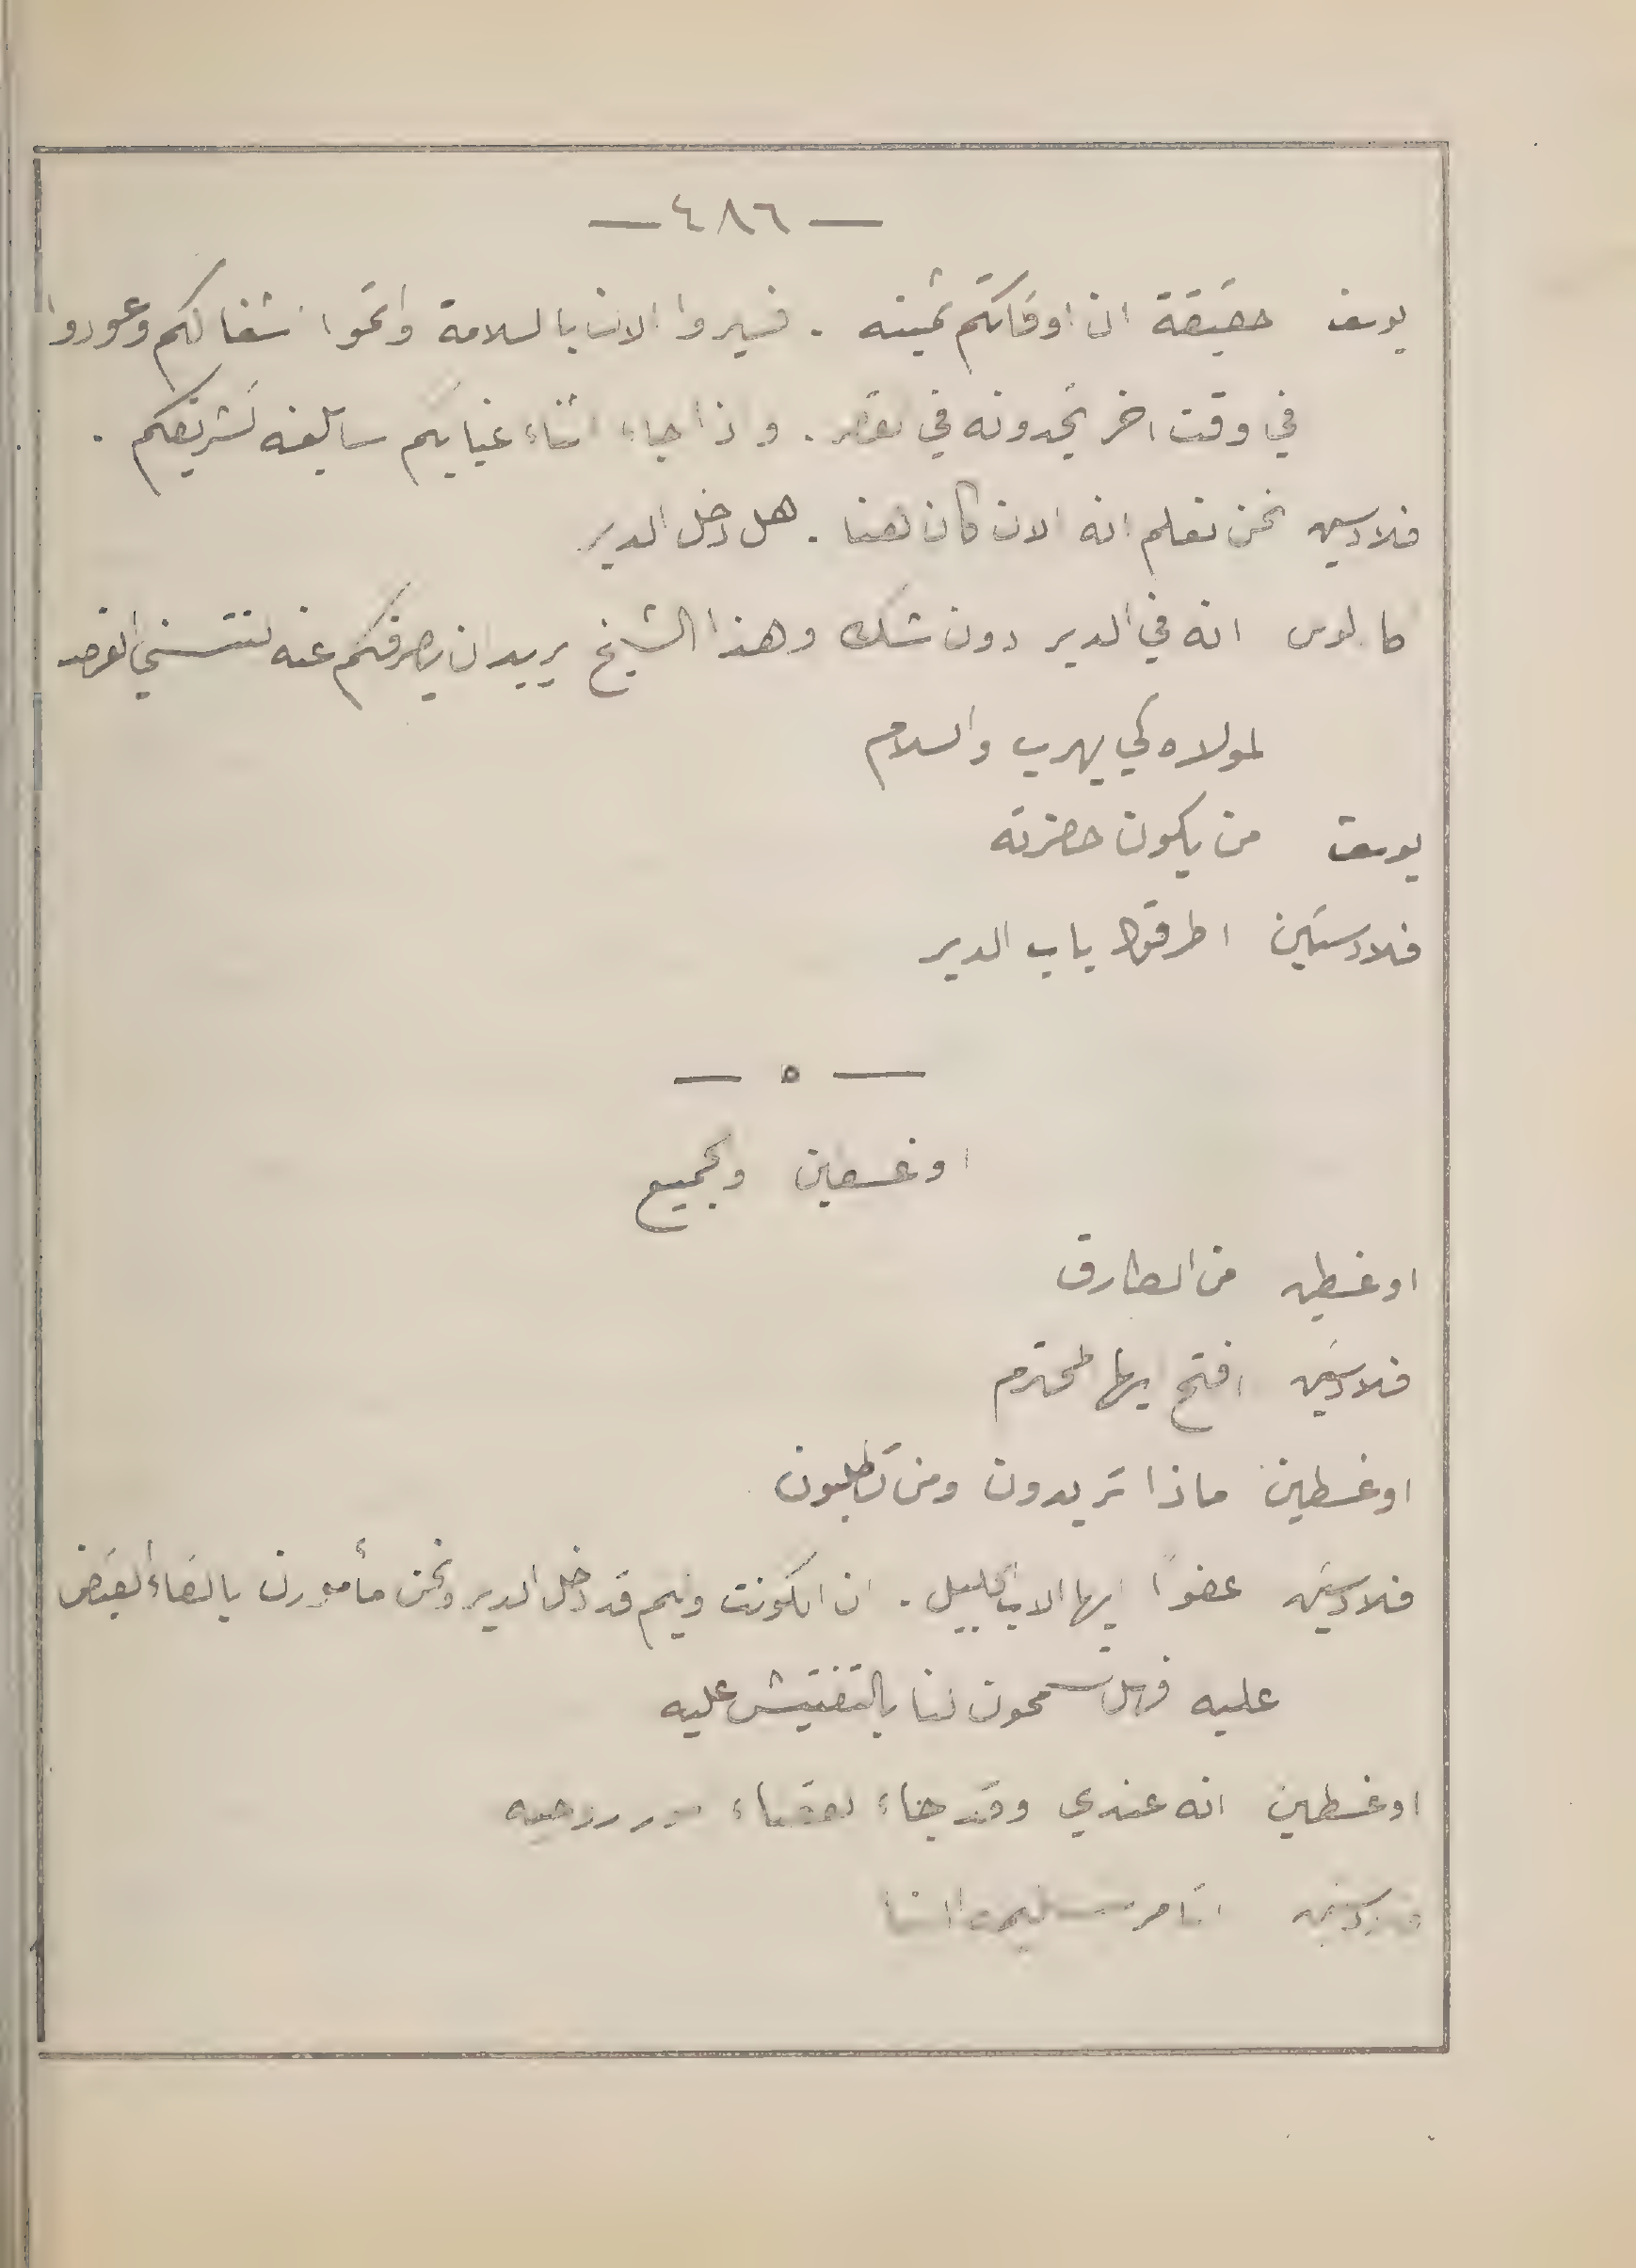 — ٤٨٦ —
يوسف حقيقة ان اوقاتكم ثمينه . فسيروا الان بالسلامة واتموا اشغالكم وعودوا
في وقت اخر تجدونه في . واذا جاء اثناء غيابكم سابلغه تشريفكم .
فلادسين نحن نعلم انه الان كان هنا . هل دخل الدير
كابلوس انه في الدير دون شك وهذا الشيخ يريد ان يصرفكم عنه لتتسنى الفرصه
لمولاه كي يهرب والسلام
يوسف من يكون حضرته
فلادستين اطرقوا باب الدير
— ٥ —
اوغسطين والجميع
اوغسطين من الطارق
فلادستين افتح ايها المحترم
اوغسطين ماذا تريدون ومن تطلبون
فلادستين عفواً ايها الاب الجليل . ان الكونت وليم قد دخل الدير ونحن مأمورون بالقاء القبض
عليه فهل تسمحون لنا بالتفتيش عليه
اوغسطين انه عندي وقد جاء لقضاء روحيه